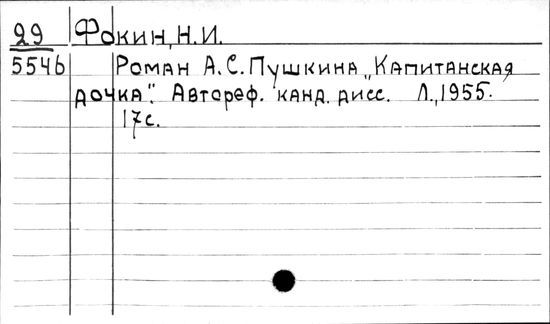 29 Фокин, Н.И.
5546 Роман А.С. Пушкина „Капитанская
дочка". Автореф. канд. дисс. Л., 1955.
17с.